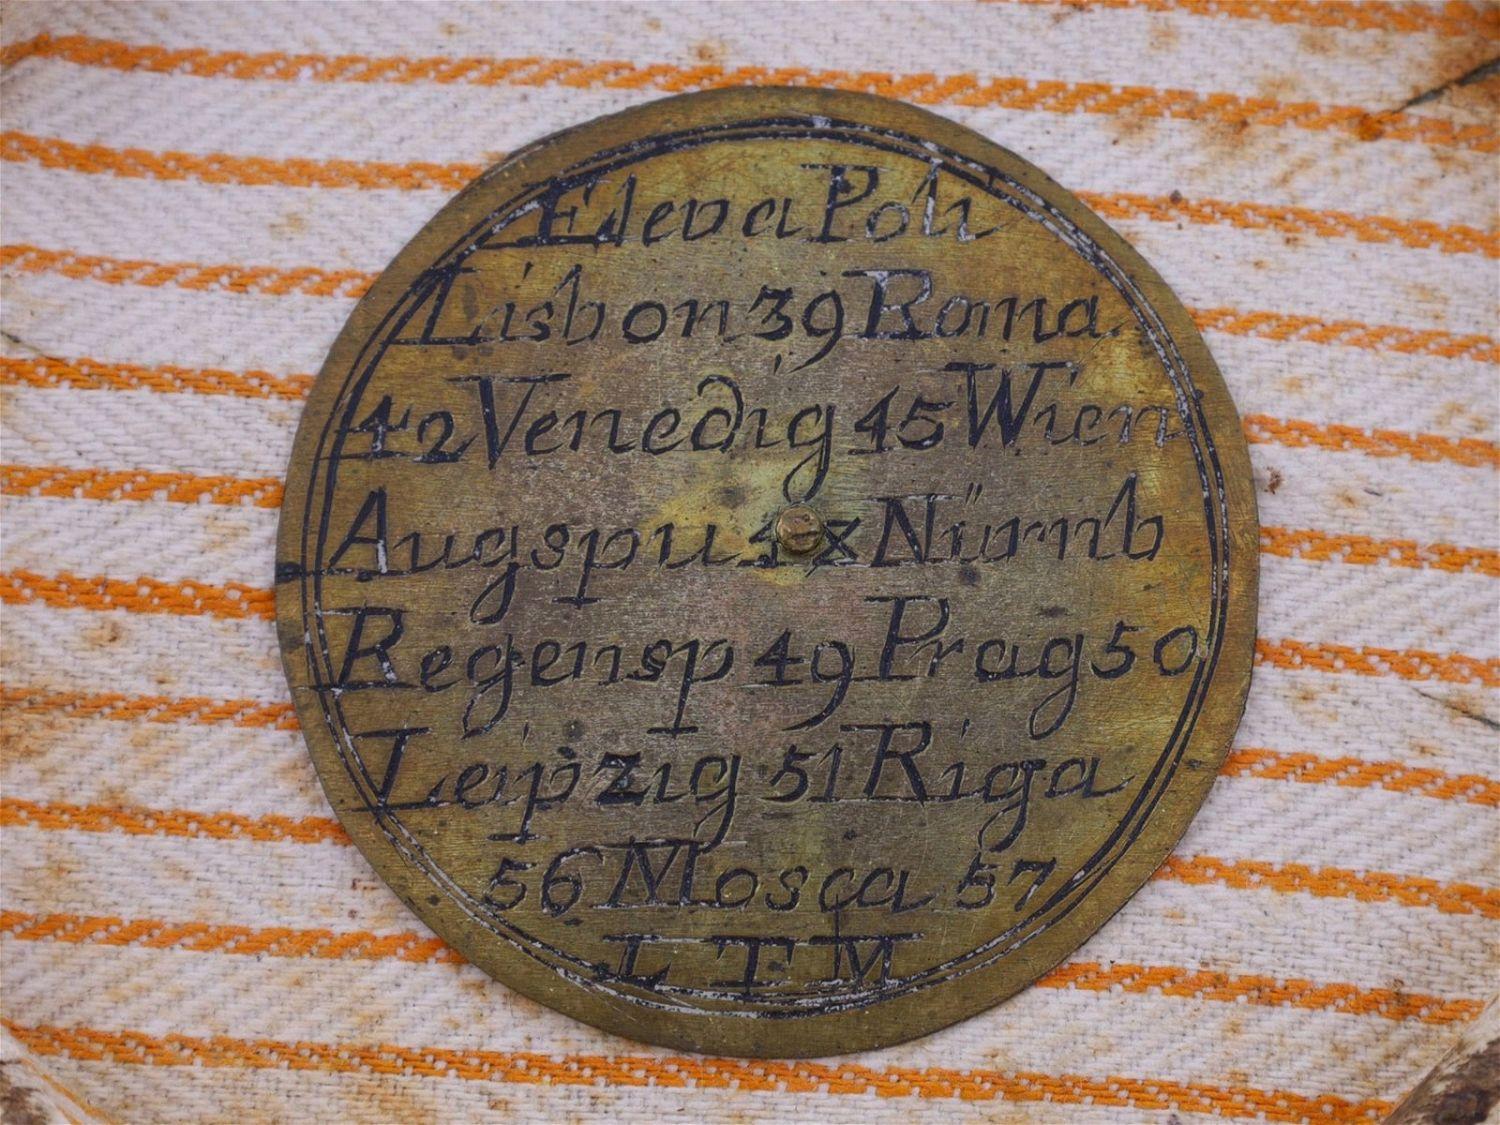 Eleva Poli
Lisbon 39 Roma
42 Venedig 45 Wien
Augspu 48 Nürnb
Regensp 49 Prag 50
Leipzig 51 Riga
56 Mosca 57
LTM